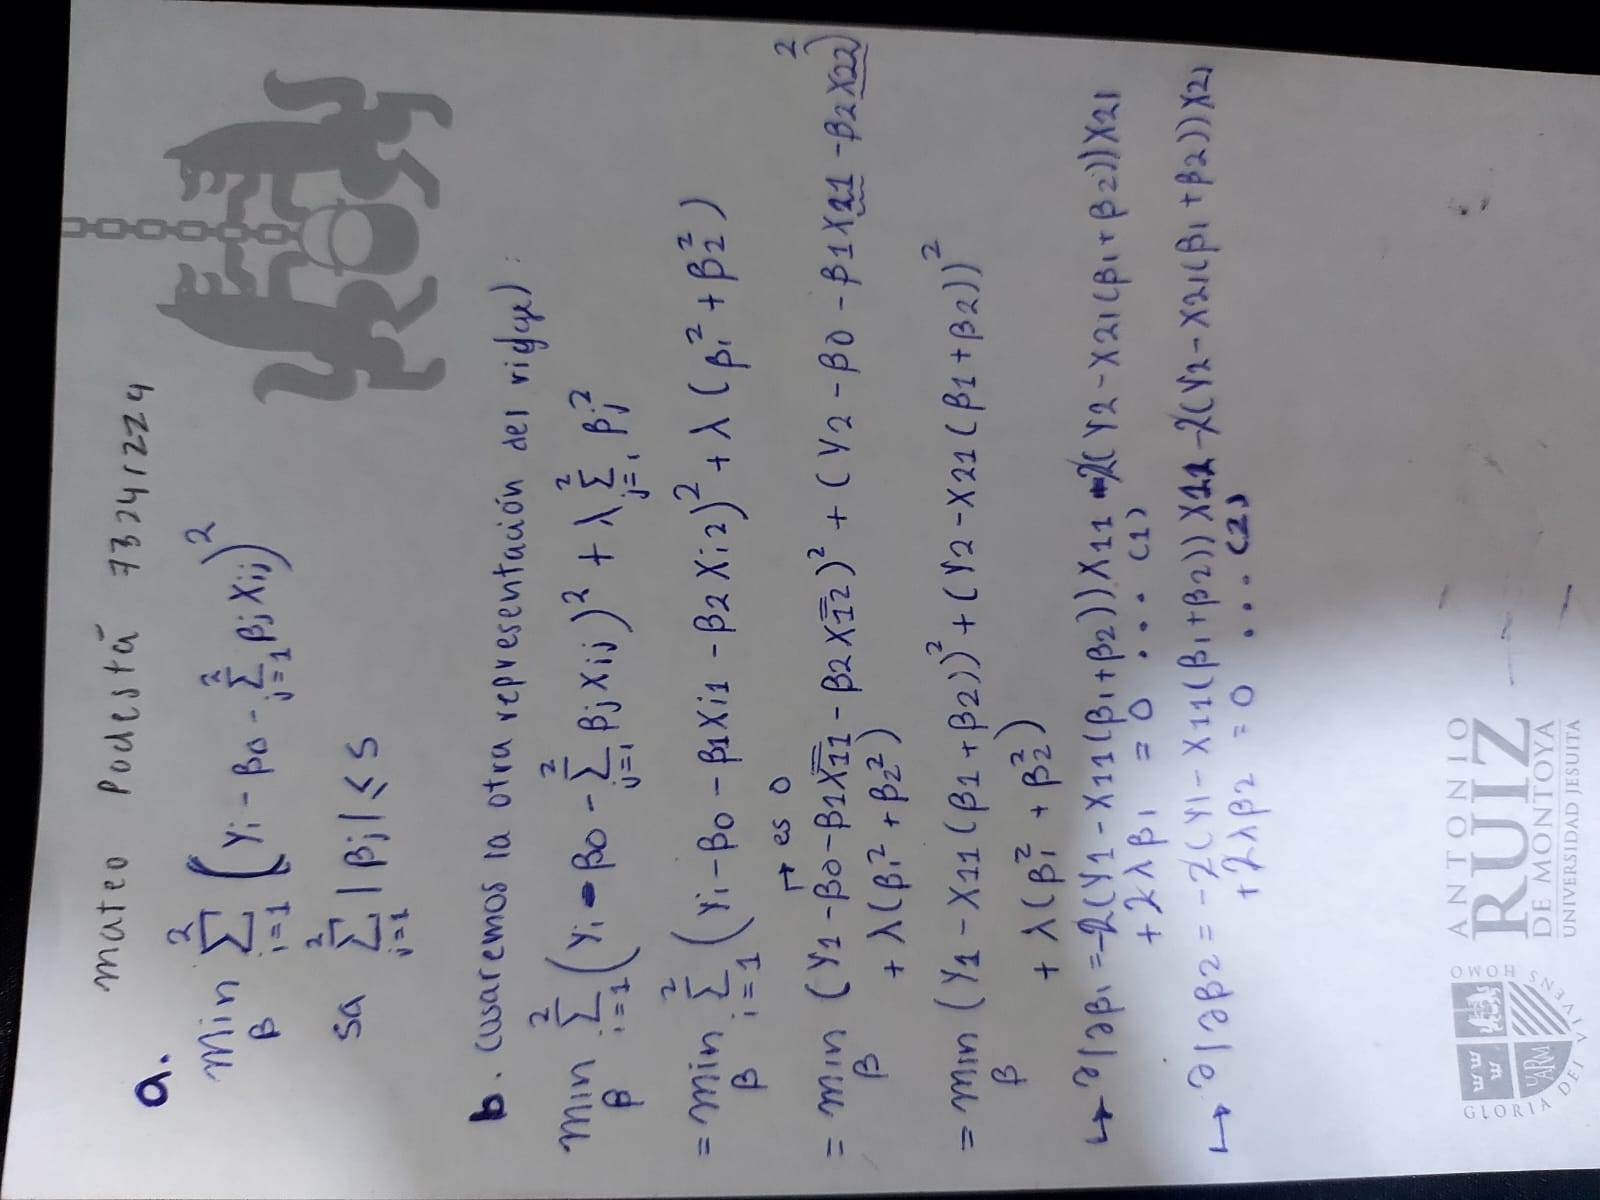 mateo Podestá 73241224
a.
Min β Σ_{i=1}^{2} (Yi - β0 - Σ_{j=1}^{2} βj Xij)^2
sa Σ_{j=1}^{2} |βj| ≤ s
b. (usaremos la otra representación del ridge):
Min β Σ_{i=1}^{2} (Yi - β0 - Σ_{j=1}^{2} βj Xij)^2 + λ Σ_{j=1}^{2} βj^2
= Min β Σ_{i=1}^{2} (Yi - β0 - β1Xi1 - β2Xi2)^2 + λ(β1^2 + β2^2)
↱ es 0
= min β (Y1 - β0 - β1X11 - β2X12)^2 + (Y2 - β0 - β1X21 - β2X22)^2
+ λ(β1^2 + β2^2)
= min β (Y1 - X11(β1+β2))^2 + (Y2 - X21(β1+β2))^2
+ λ(β1^2 + β2^2)
↳ ∂/∂β1 = -2(Y1 - X11(β1+β2))X11 - 2(Y2 - X21(β1+β2))X21
+ 2λβ1 = 0 ... (1)
↳ ∂/∂β2 = -2(Y1 - X11(β1+β2)) - 2(Y2 - X21(β1+β2))X21
+ 2λβ2 = 0 ... (2)
GLORIA DEI VIVENS HOMO
UARM
ANTONIO
RUIZ
DE MONTOYA
UNIVERSIDAD JESUITA